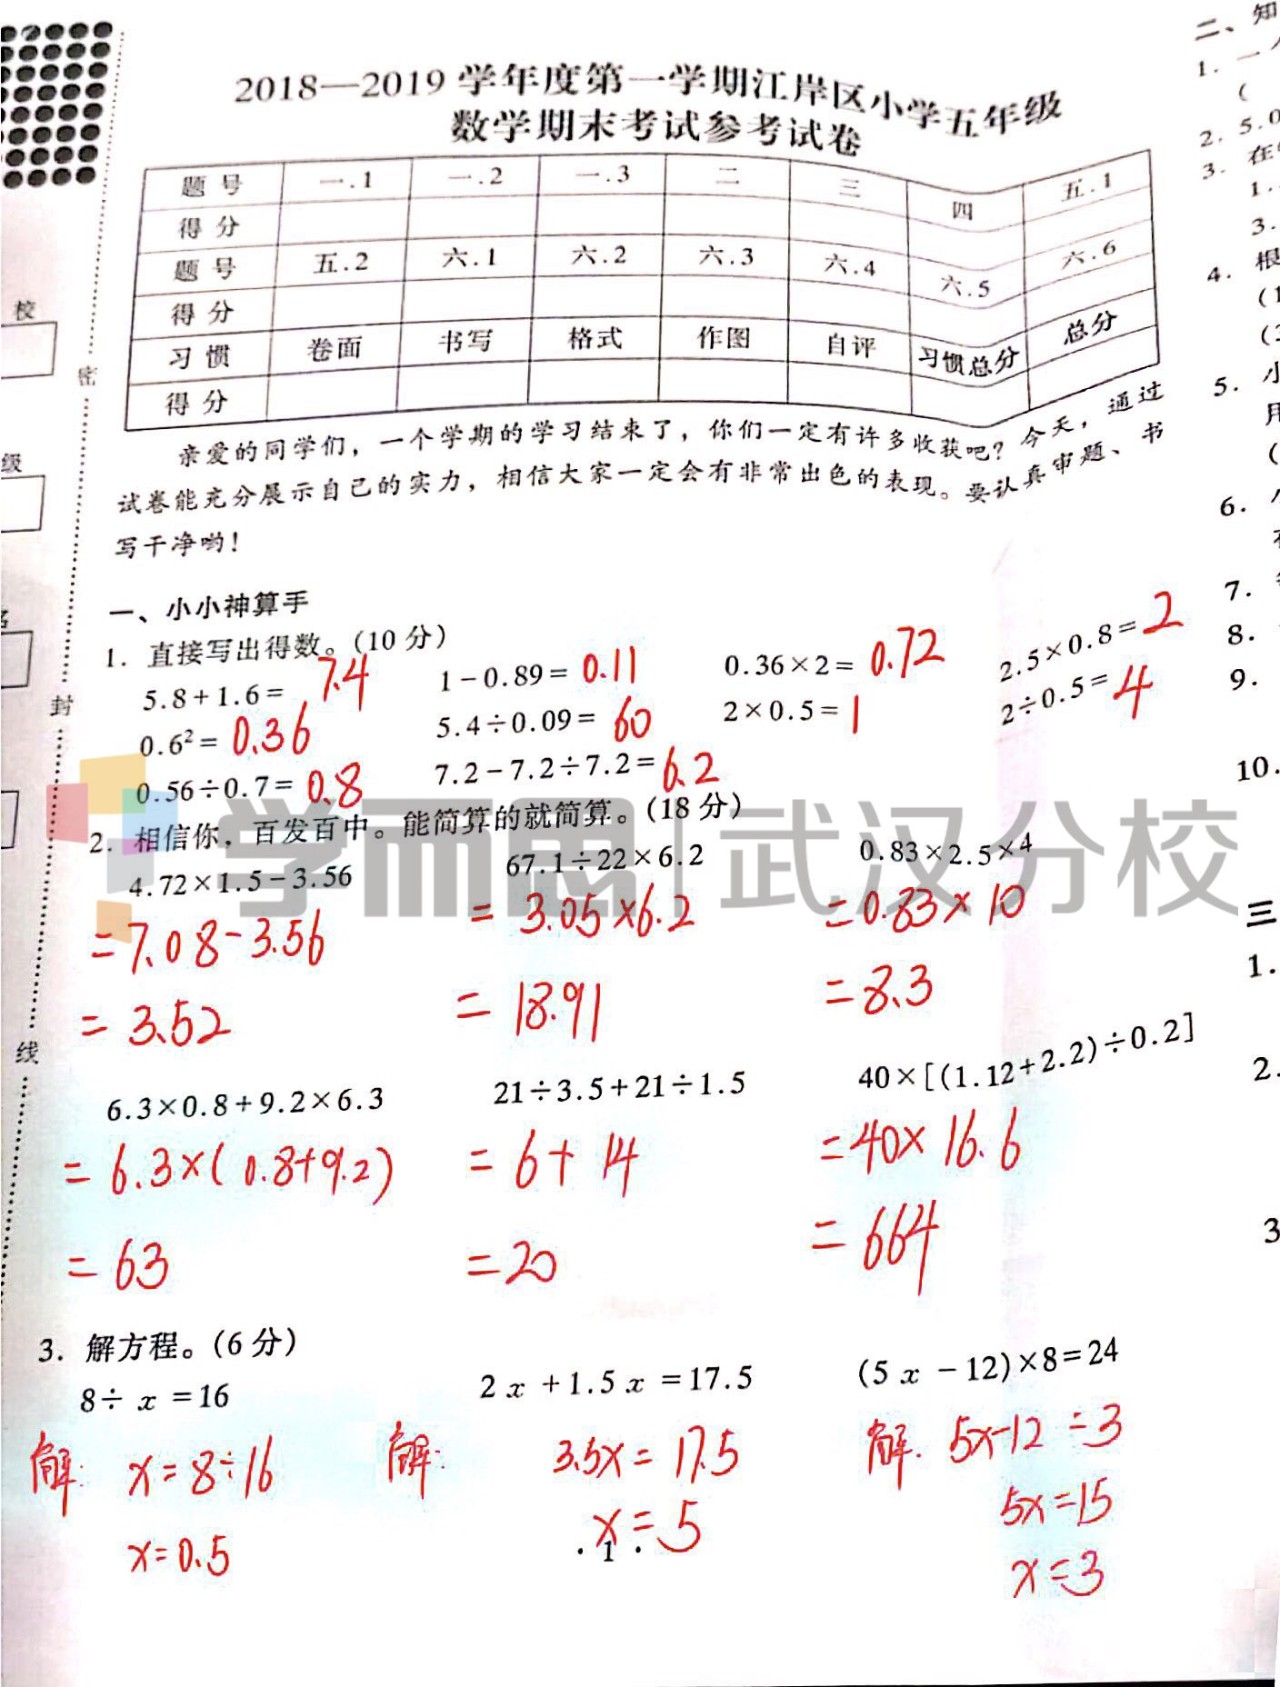 2018—2019 学年度第一学期江岸区小学五年级
数学期末考试参考试卷
题号 一.1 一.2 一.3 二 三 四 五.1
得分
题号 五.2 六.1 六.2 六.3 六.4 六.5 六.6
得分
习惯 卷面 书写 格式 作图 自评 习惯总分 总分
得分
亲爱的同学们，一个学期的学习结束了，你们一定有许多收获吧？今天，通过
试卷能充分展示自己的实力，相信大家一定会有非常出色的表现。要认真审题、书
写干净哟！
一、小小神算手
1. 直接写出得数。(10 分)
5.8+1.6= 7.4 1-0.89= 0.11 0.36×2= 0.72 2.5×0.8= 2
0.6²= 0.36 5.4÷0.09= 60 2×0.5= 1 2÷0.5= 4
0.56÷0.7= 0.8 7.2-7.2÷7.2= 6.2
2. 相信你，百发百中。能简算的就简算。(18 分)
4.72×1.5-3.56 67.1÷22×6.2 0.83×2.5×4
=7.08-3.56 = 3.05×6.2 =0.83×10
= 3.52 = 18.91 =8.3
6.3×0.8+9.2×6.3 21÷3.5+21÷1.5 40×[(1.12+2.2)÷0.2]
= 6.3×(0.8+9.2) = 6+14 =40×16.6
= 63 =20 =664
3. 解方程。(6 分)
8÷ x =16 2 x +1.5 x =17.5 (5 x -12)×8=24
解: x=8÷16 解: 3.5x=17.5 解. 5x-12=3
x=0.5 x=5 5x=15
x=3
·1·
校
级
密
封
线
学而思 武汉分校
二、知
1. 一
(
2. 5.0
3. 在
1.
3.
4. 根
(1
5. 小
用
(
6.
7.
8.
9.
10.
三
1.
2.
3